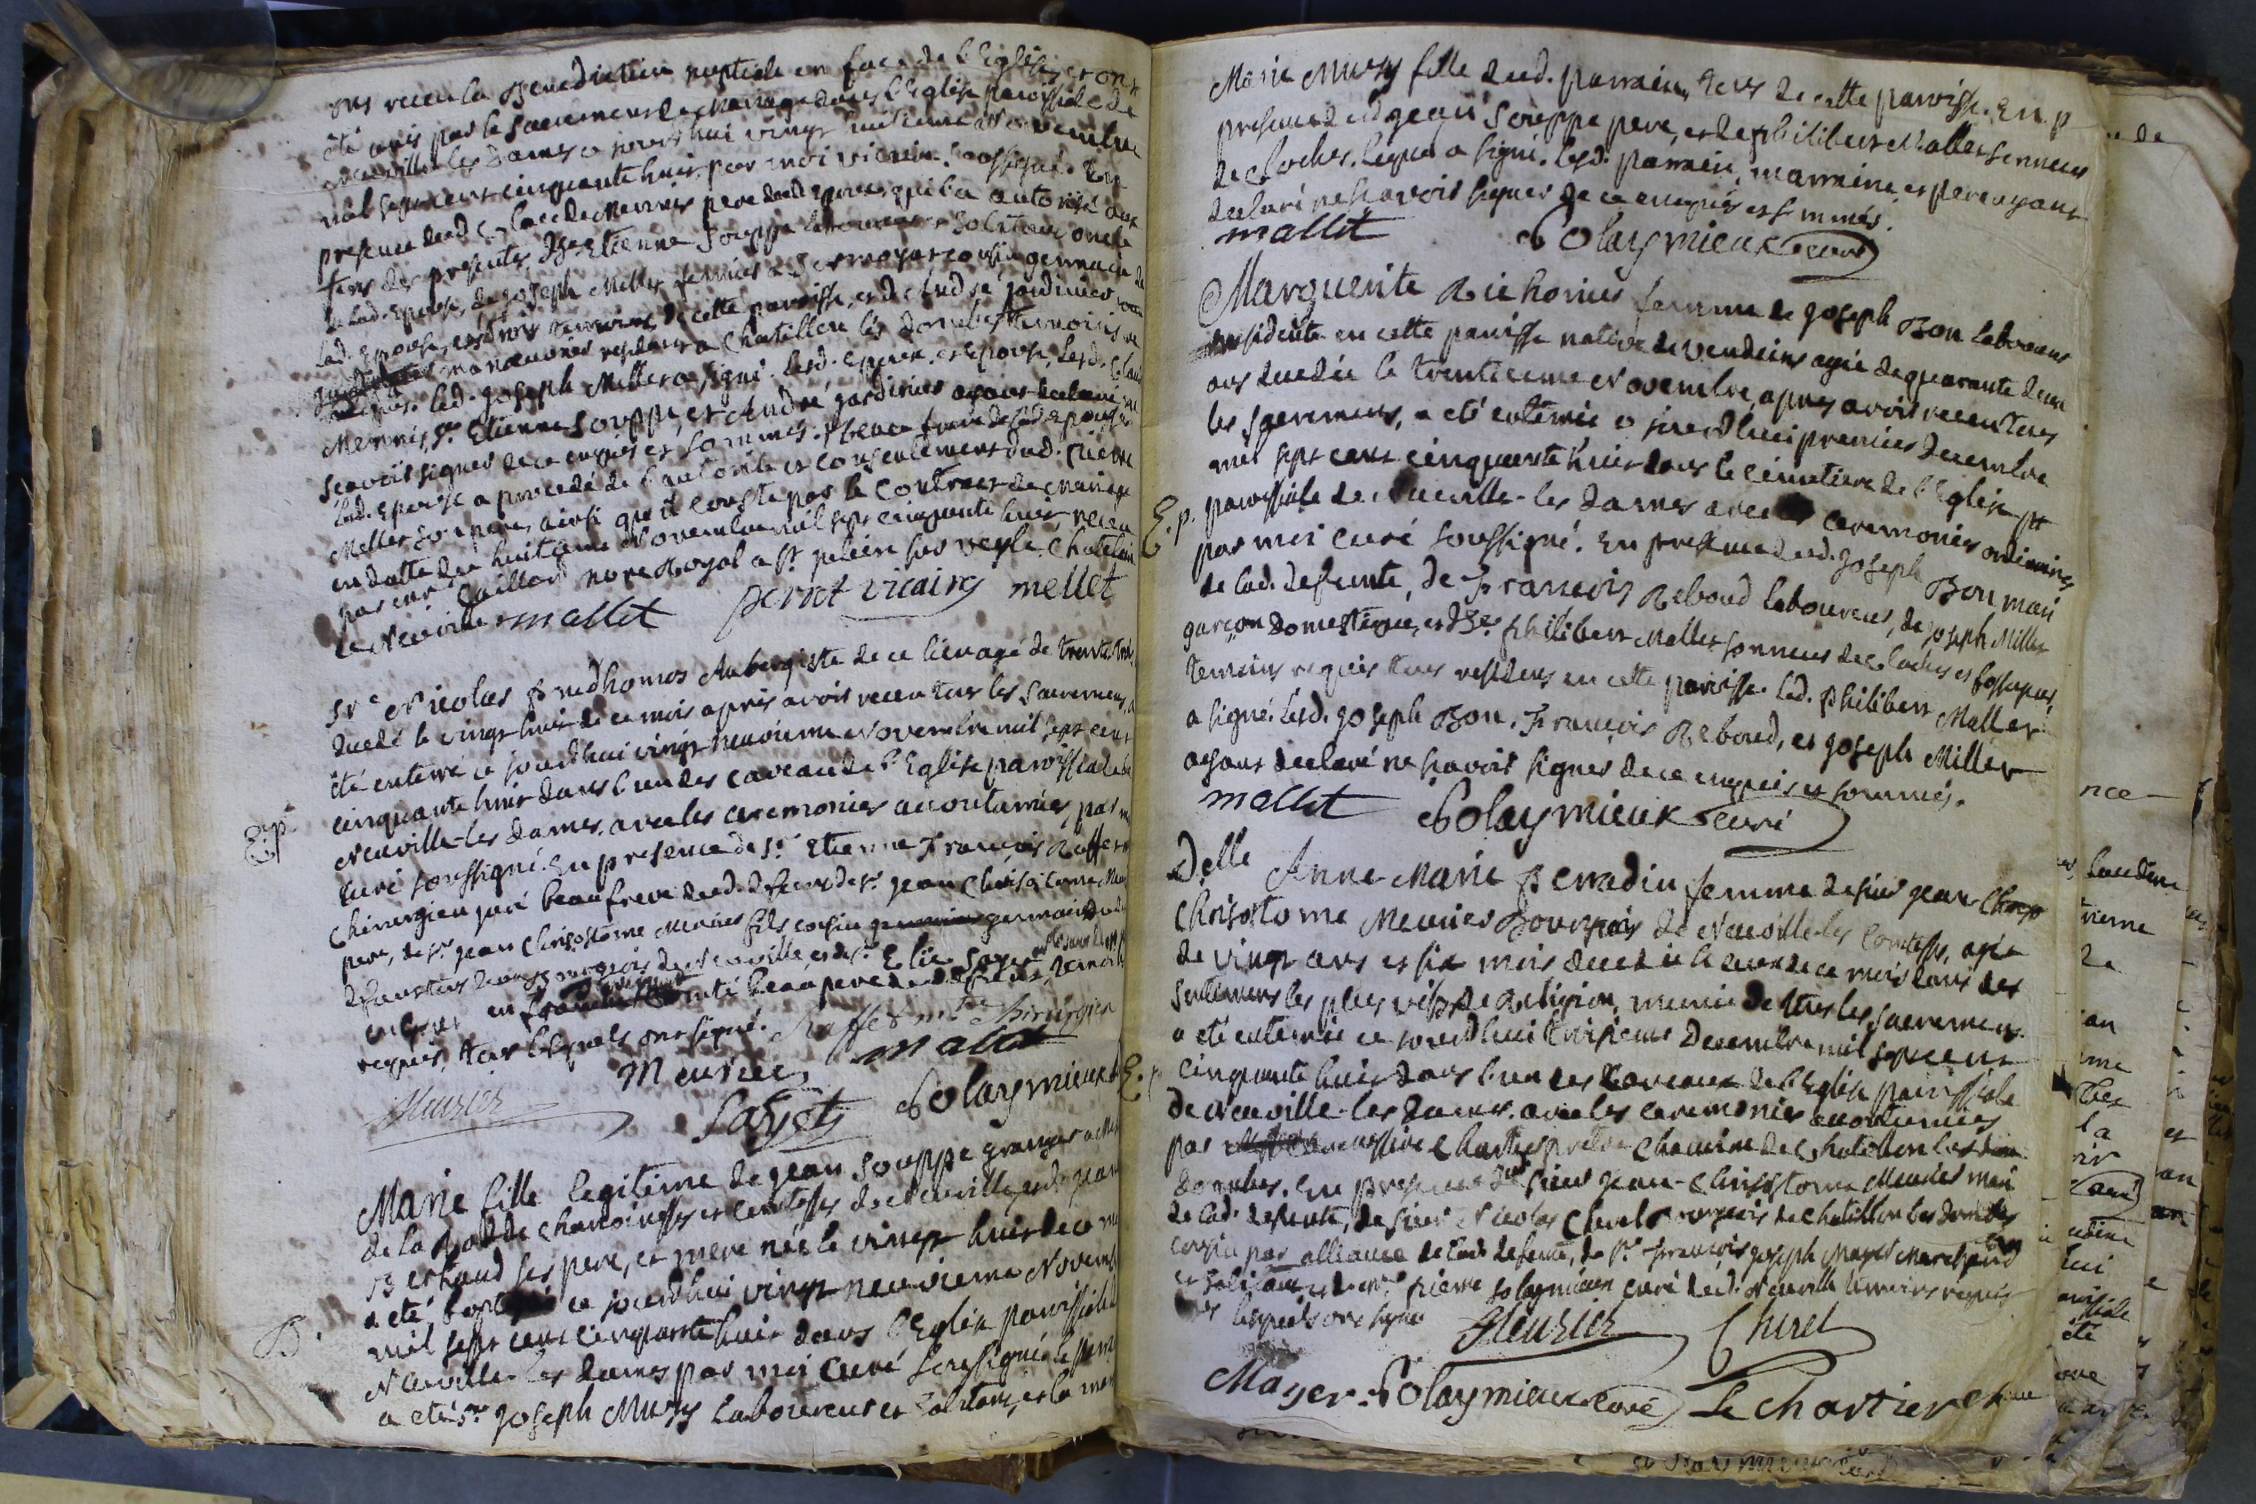 ons receu la Benediction nuptiale en face de l'Eglise, et ont
été unis par le Sacrement de Mariage dans l'Eglise paroissiale de
Neuville les Dames ce jourd'hui vingt huitieme Novembre
mil sept cent cinquante huit par moi vicaire soussigné. En
presence dud. Claude Mennis pere dud. Epoux, qui l'a autorisé aux
fins des presentes, d'Sr Etienne Souppe laboureur et Solitam oncle
de lad. Epouse, de Joseph Mellet cousin germain de
lad. Epouse, tesdrois temoins de cette paroisse, et d'André Jardinier
manouvrier resident a Chatillon les Dombes temoins
requis. led. Joseph Millet a signé. lesd. Epoux, et Epouse, lesd. Claude
Mennis, Sr Etienne Souppe, et André Jardinier ayant declaré ne
scavoir signer de ce enquis et sommes. frere de lad. Epouse
lad. Epouse a procedé de l'autorité et consentement dud. Pierre
Mellet son pere, ainsi qu'il conste par le Contract de Mariage
en datte du huitieme Novembre mil sept cinquante huit, receu
par me Caillard nore Royal a St julien sur Veyle, Chatelain
de Neuville mallet pernet vicaire mellet
Sr Nicolas Prudhomos Aubergiste de ce lieu agé de trente trois
decedé le vingt huit de ce mois aprés avoir receu tous les Sacremens, a
été enterré ce jourd'hui vingt neuvieme Novembre mil sept cent
cinquante huit dans l'un des caveaux de l'Eglise paroissiale de
Neuville-les Dames, avec les ceremonies accoutumées, par moi
E.p.
curé soussigné. En presence de Sr Etienne François Raffet
Chirurgien juré beaufrere dud. defunt, de Sr Jean Chrisostome Meunier
pere, de Sr Jean Chrisostome Meunier fils cousin germains dud.
defunt tous deux Bourgeois de Neuville, et de Sr Elie Sayet
beaupere dud. defunt, temoins
requis, tous lesquels ont signé. Raffet mtre Chirurgien
Meunier mallet
Meunier Sayet Solaymieux
Marie fille legitime de Jean Souppe granger a
de la Dodde chanoinesses et Comtesses de Neuville, et de Jeanne
Bertaud ses pere, et mere née le vingt huit de ce mois
a été baptisée ce jourd'hui vingt neuvieme Novembre
B.
mil sept cent cinquante huit dans l'Eglise paroissiale de
Neuville les Dames par moi Curé soussigné le parrain
a été Sr Joseph Mury Laboureur et Solitam, et la marraine
Marie Mury fille dud. parrain, tous de cette paroisse. En p
presence dud. Jean Souppe pere, et de Philibert Mallet sonneur
de cloches, lequel a signé. lesd. parrain, marraine, et pere ayant
declaré ne scavoir signer de ce enquis et sommés.
mallet Solaymieux curé
Marguerite Richonier femme de Joseph Bon laboureur
residente en cette paroisse native de Vendeins agée de quarante deux
ans decedée le trentieme Novembre, apres avoir receu tous
les Sacremens, a été enterrée ce jourd'hui premier Decembre
mil sept cent cinquante huit dans le cimetiere de l'Eglise
E.p.
paroissiale de Neuville-les Dames avec les ceremonies ordinaires
par moi curé soussigné. En presence dud. Joseph Bon mari
de lad. defunte, de François Reboud laboureur, de Joseph Millet
garçon domestique, et d'Sr Philibert Mallet sonneur de cloches et fossoyeur,
temoins requis tous residens en cette paroisse. led. Philibert Mallet
a signé. lesd. Joseph Bon, François Reboud, et Joseph Millet
ayant declaré ne scavoir signer de ce enquis et sommés.
mallet Solaymieux curé
Delle Anne-Marie Perradin femme de sieur Jean
Chrisostome Meunier Bourgeois de Neuville-les Comtesses, agée
de vingt ans et six mois decedée le deux de ce mois dans des
sentimens les plus vifs de Religion, munie de tous les sacremens.
a été enterrée ce jourd'hui troisieme Decembre mil sept cent
E.p.
cinquante huit dans l'un des Caveaux de l'Eglise paroissiale
de Neuville-les Dames, avec les ceremonies accoutumées
par messire Chartier prêtre Chanoine de Chatillon les
Dombes. En presence dud. sieur Jean-Chrisostome Meunier mari
de lad. defunte, de sieur Nicolas Chirel Bourgeois de Chatillon les Dombes
cousin par alliance de lad. defunte, de Sr François Joseph Mayer Marchand
et de mre Pierre Solaymieux curé dud. Neuville temoins requis
lesquels ont signé Meunier Chirel
Mayer Solaymieux curé Le Chartier